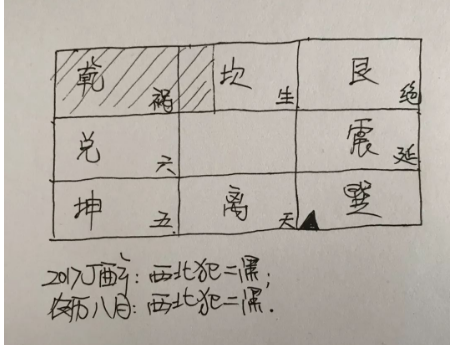 乾 祸 坎 生 艮 绝
兑 六 震 延
坤 五 离 天 巽
2017丁酉年：西北犯二黑；
农历八月：西北犯二黑．